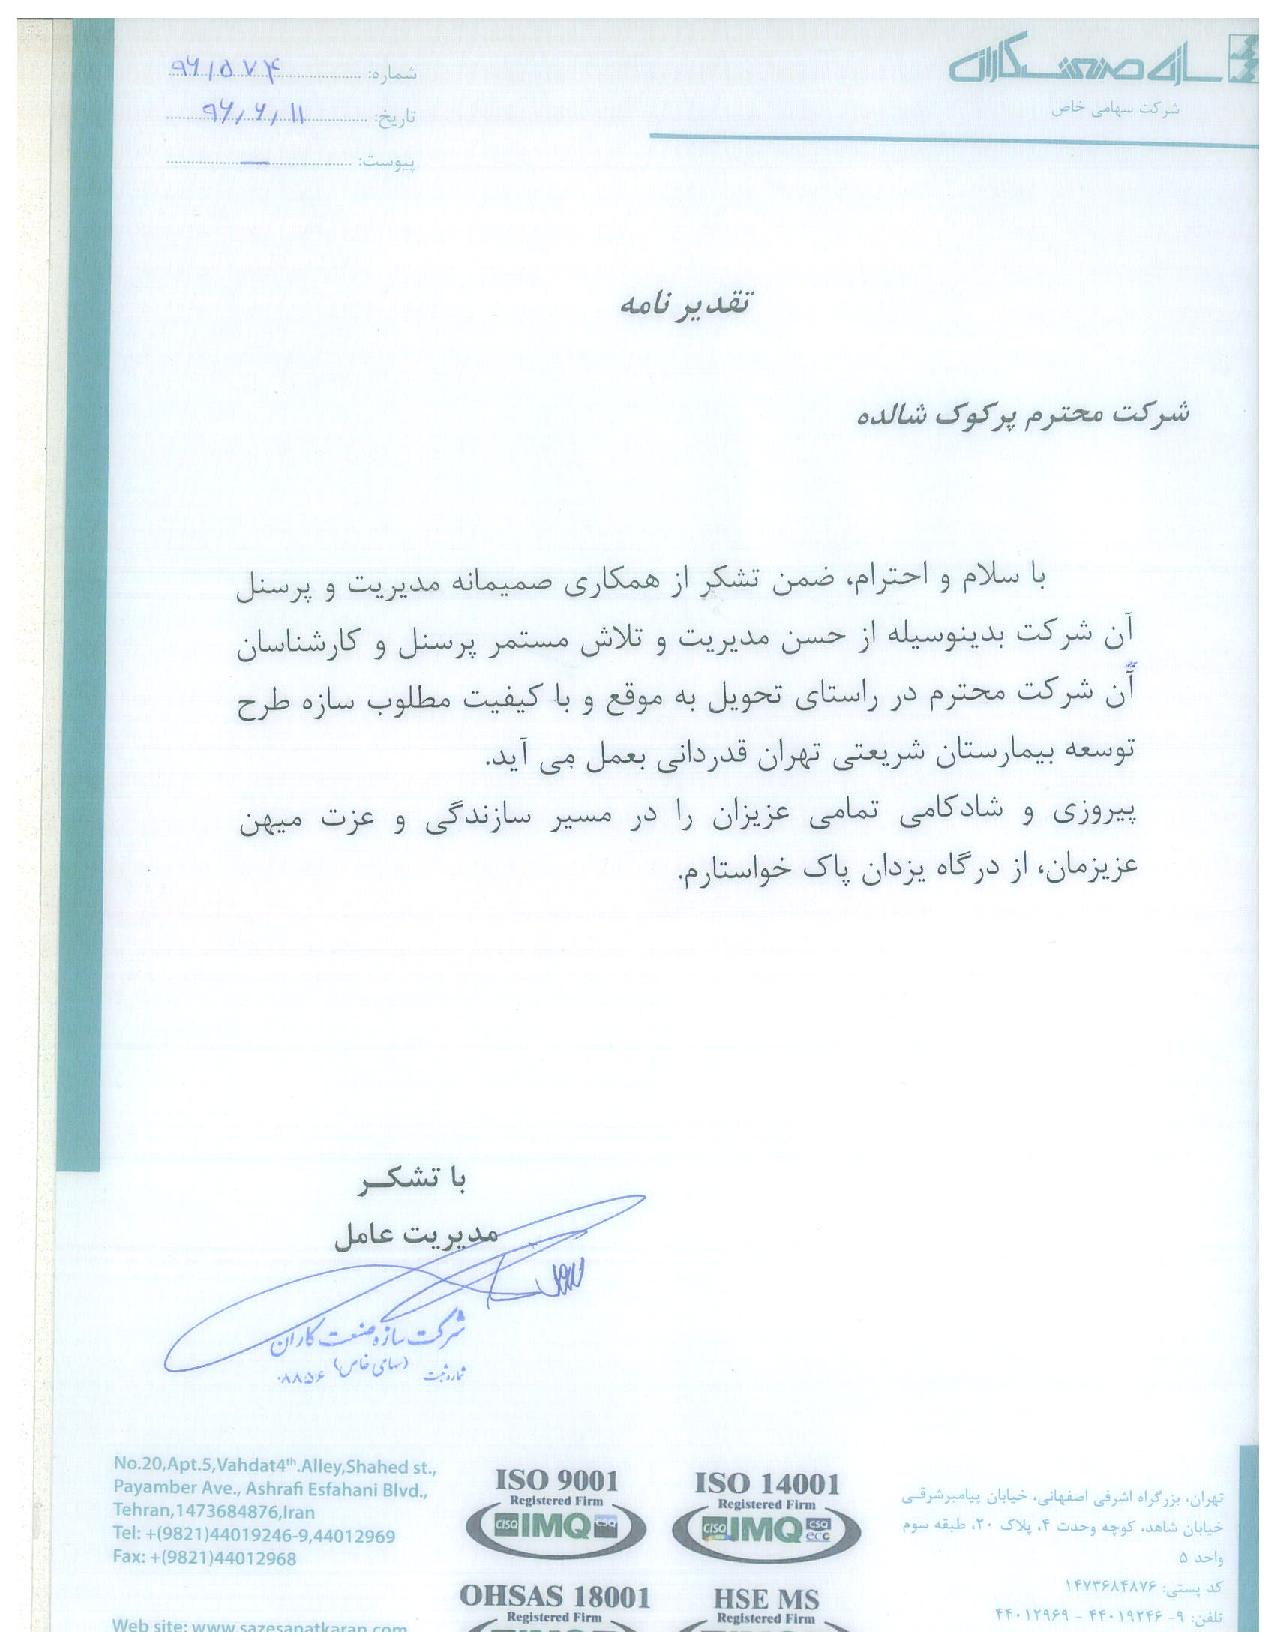 سازه صنعت کاران
شرکت سهامی خاص
شماره: ۹۶/۵۷۴
تاریخ: ۹۶/۶/۱۱
پیوست: —
تقدیر نامه
شرکت محترم پرکوک شالده
با سلام و احترام، ضمن تشکر از همکاری صمیمانه مدیریت و پرسنل
آن شرکت بدینوسیله از حسن مدیریت و تلاش مستمر پرسنل و کارشناسان
آن شرکت محترم در راستای تحویل به موقع و با کیفیت مطلوب سازه طرح
توسعه بیمارستان شریعتی تهران قدردانی بعمل می آید.
پیروزی و شادکامی تمامی عزیزان را در مسیر سازندگی و عزت میهن
عزیزمان، از درگاه یزدان پاک خواستارم.
با تشکـر
مدیریت عامل
شرکت سازه صنعت کاران
(سهامی خاص)
شماره ثبت ۰۸۸۵۶
No.20,Apt.5,Vahdat4th.Alley,Shahed st.,
Payamber Ave., Ashrafi Esfahani Blvd.,
Tehran,1473684876,Iran
Tel: +(9821)44019246-9,44012969
Fax: +(9821)44012968
Web site: www.sazesanatkaran.com
ISO 9001
Registered Firm
CISQ IMQ CSQ
ISO 14001
Registered Firm
CISQ IMQ CSQ eco
OHSAS 18001
Registered Firm
HSE MS
Registered Firm
تهران، بزرگراه اشرفی اصفهانی، خیابان پیامبرشرقی
خیابان شاهد، کوچه وحدت ۴، پلاک ۲۰، طبقه سوم
واحد ۵
کد پستی: ۱۴۷۳۶۸۴۸۷۶
تلفن: ۹- ۴۴۰۱۹۲۴۶ - ۴۴۰۱۲۹۶۹